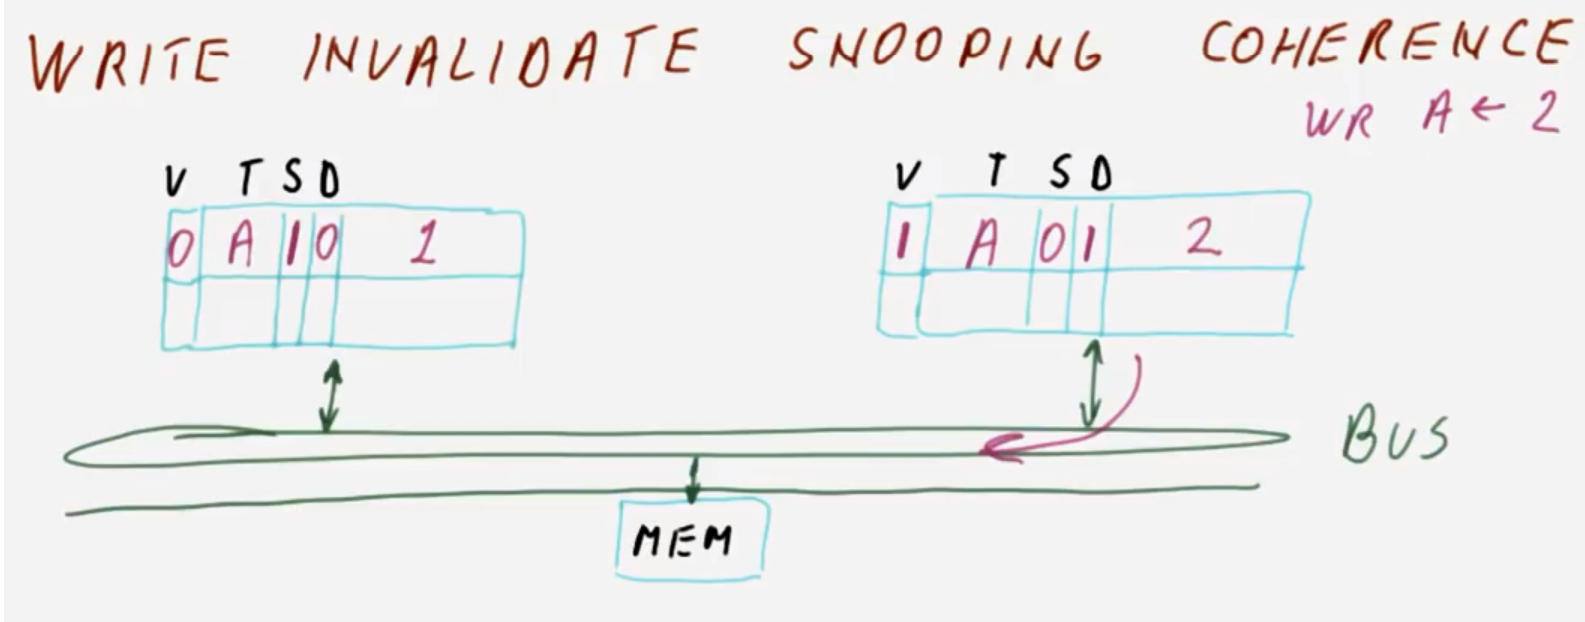 WRITE INVALIDATE SNOOPING COHERENCE
WR A ← 2
V T S D
V T S D
0 A 1 0 1
1 A 0 1 2
BUS
MEM